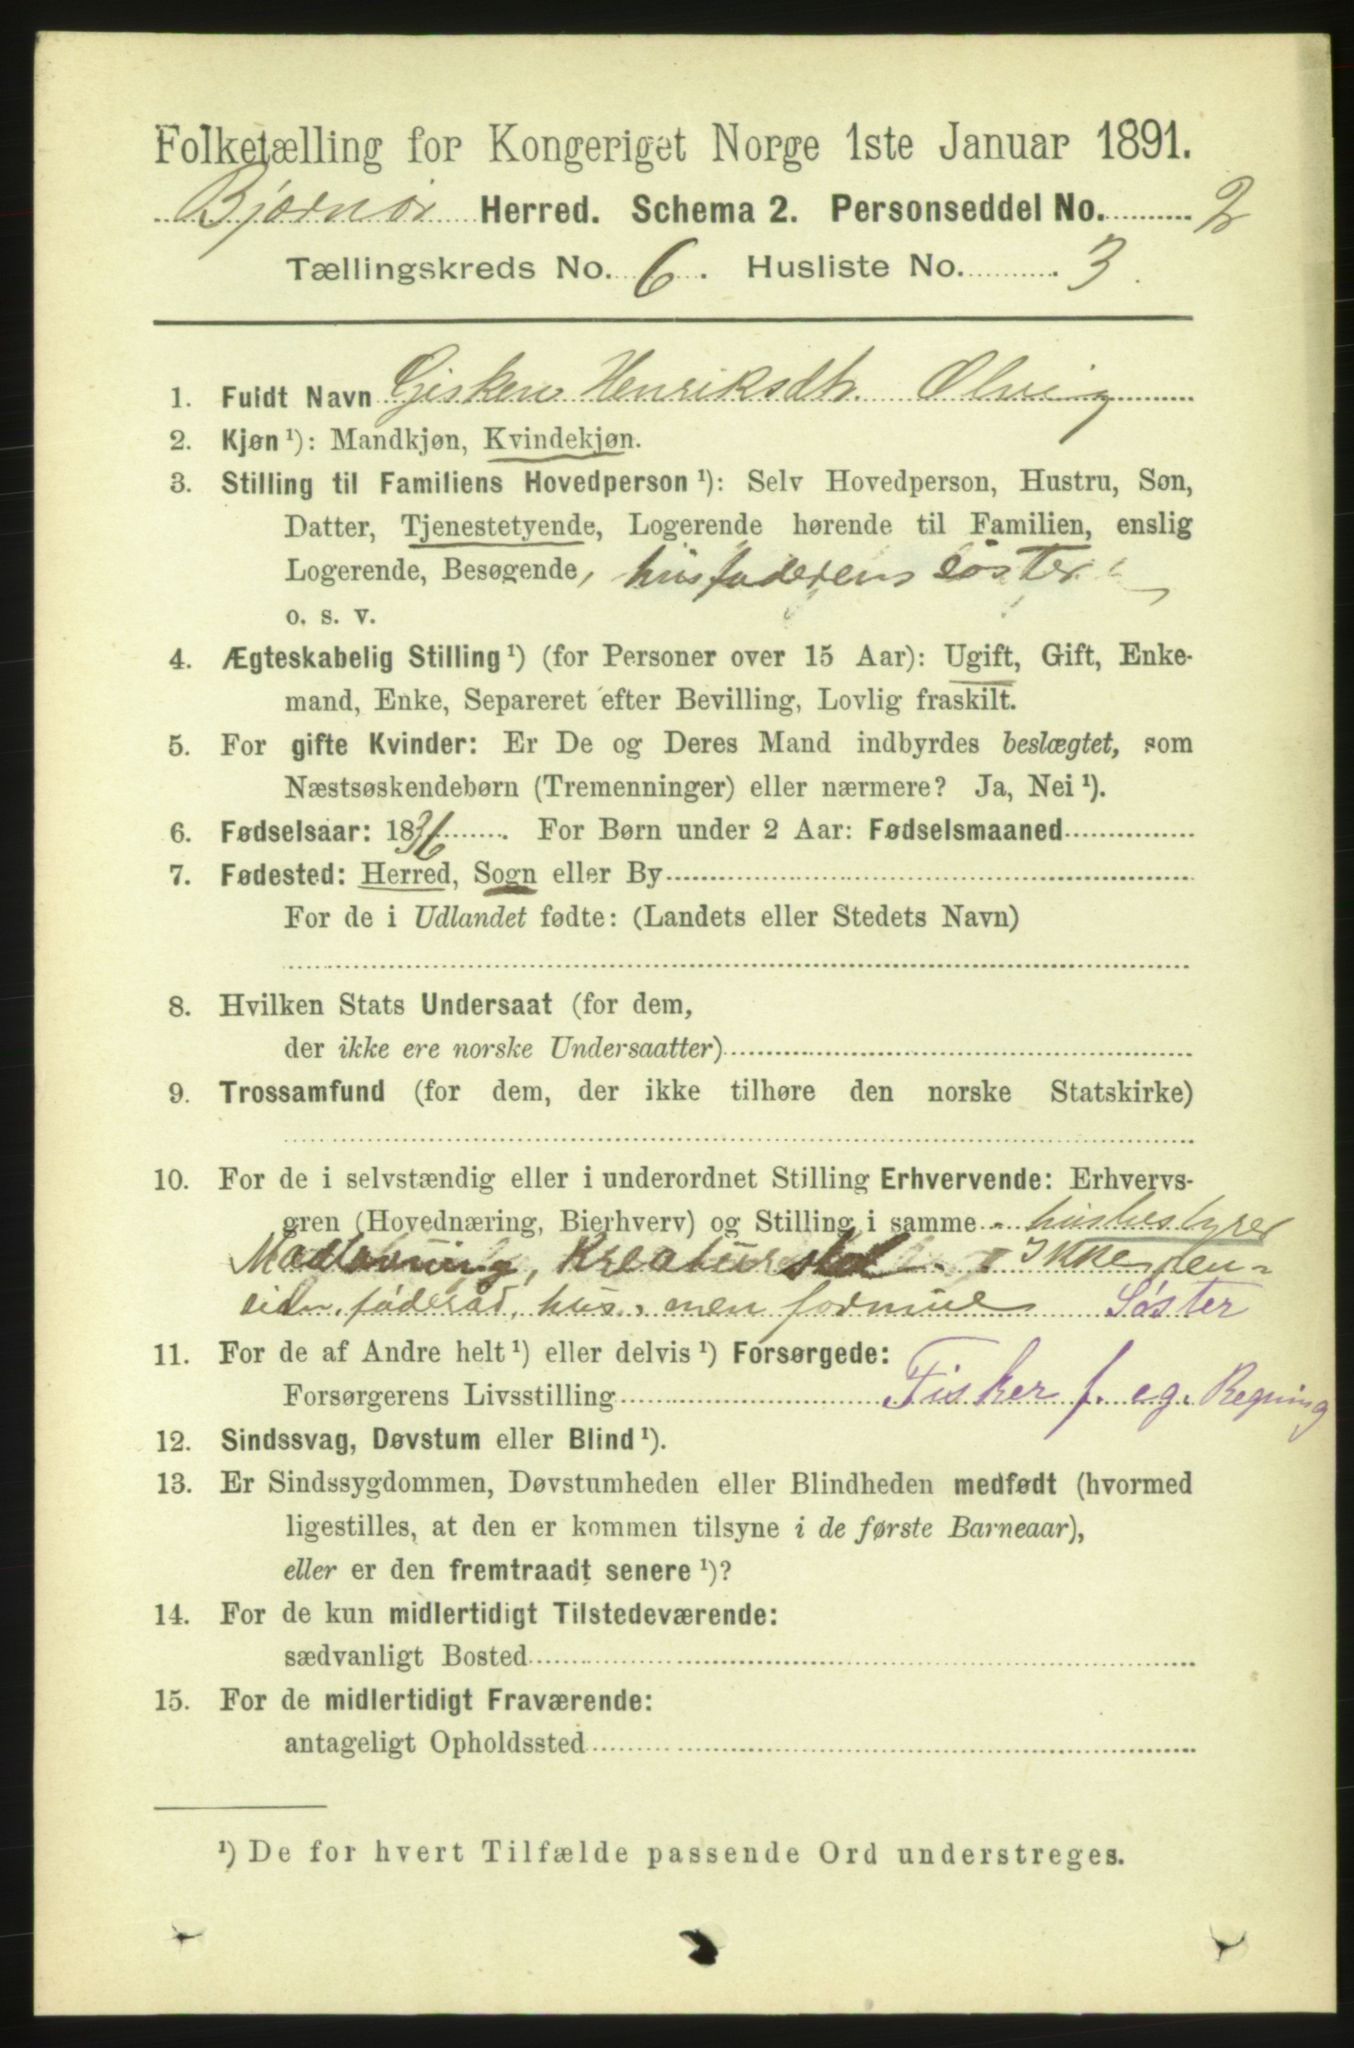 Folketælling for Kongeriget Norge 1ste Januar 1891.
Bjørnör Herred. Schema 2. Personseddel No. 2
Tællingskreds No. 6. Husliste No. 3.
1. Fuldt Navn Gjsken Henriksdtr. Olsvig
2. Kjøn ¹): Mandkjøn, Kvindekjøn.
3. Stilling til Familiens Hovedperson ¹): Selv Hovedperson, Hustru, Søn,
Datter, Tjenestetyende, Logerende hørende til Familien, enslig
Logerende, Besøgende, husfaderens söster
o. s. v.
4. Ægteskabelig Stilling ¹) (for Personer over 15 Aar): Ugift, Gift, Enke-
mand, Enke, Separeret efter Bevilling, Lovlig fraskilt.
5. For gifte Kvinder: Er De og Deres Mand indbyrdes beslægtet, som
Næstsøskendebørn (Tremenninger) eller nærmere? Ja, Nei ¹).
6. Fødselsaar: 1836. For Børn under 2 Aar: Fødselsmaaned
7. Fødested: Herred, Sogn eller By
For de i Udlandet fødte: (Landets eller Stedets Navn)
8. Hvilken Stats Undersaat (for dem,
der ikke ere norske Undersaatter)
9. Trossamfund (for dem, der ikke tilhøre den norske Statskirke)
10. For de i selvstændig eller i underordnet Stilling Erhvervende: Erhvervs-
gren (Hovednæring, Bierhverv) og Stilling i samme husbestyrer
Madlavning, Kreaturstel Ikke
föderåd, hus, men formue Söster
11. For de af Andre helt ¹) eller delvis ¹) Forsørgede:
Forsørgerens Livsstilling Fisker f. eg. Regning
12. Sindssvag, Døvstum eller Blind ¹).
13. Er Sindssygdommen, Døvstumheden eller Blindheden medfødt (hvormed
ligestilles, at den er kommen tilsyne i de første Barneaar),
eller er den fremtraadt senere ¹)?
14. For de kun midlertidigt Tilstedeværende:
sædvanligt Bosted
15. For de midlertidigt Fraværende:
antageligt Opholdssted
¹) De for hvert Tilfælde passende Ord understreges.